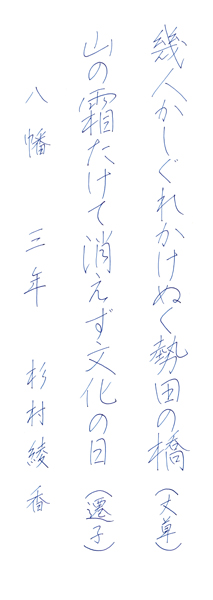 幾人かしぐれかけぬく勢田の橋（丈草）
山の霜たけて消えず文化の日（遷子）
八幡 三年 杉村綾香